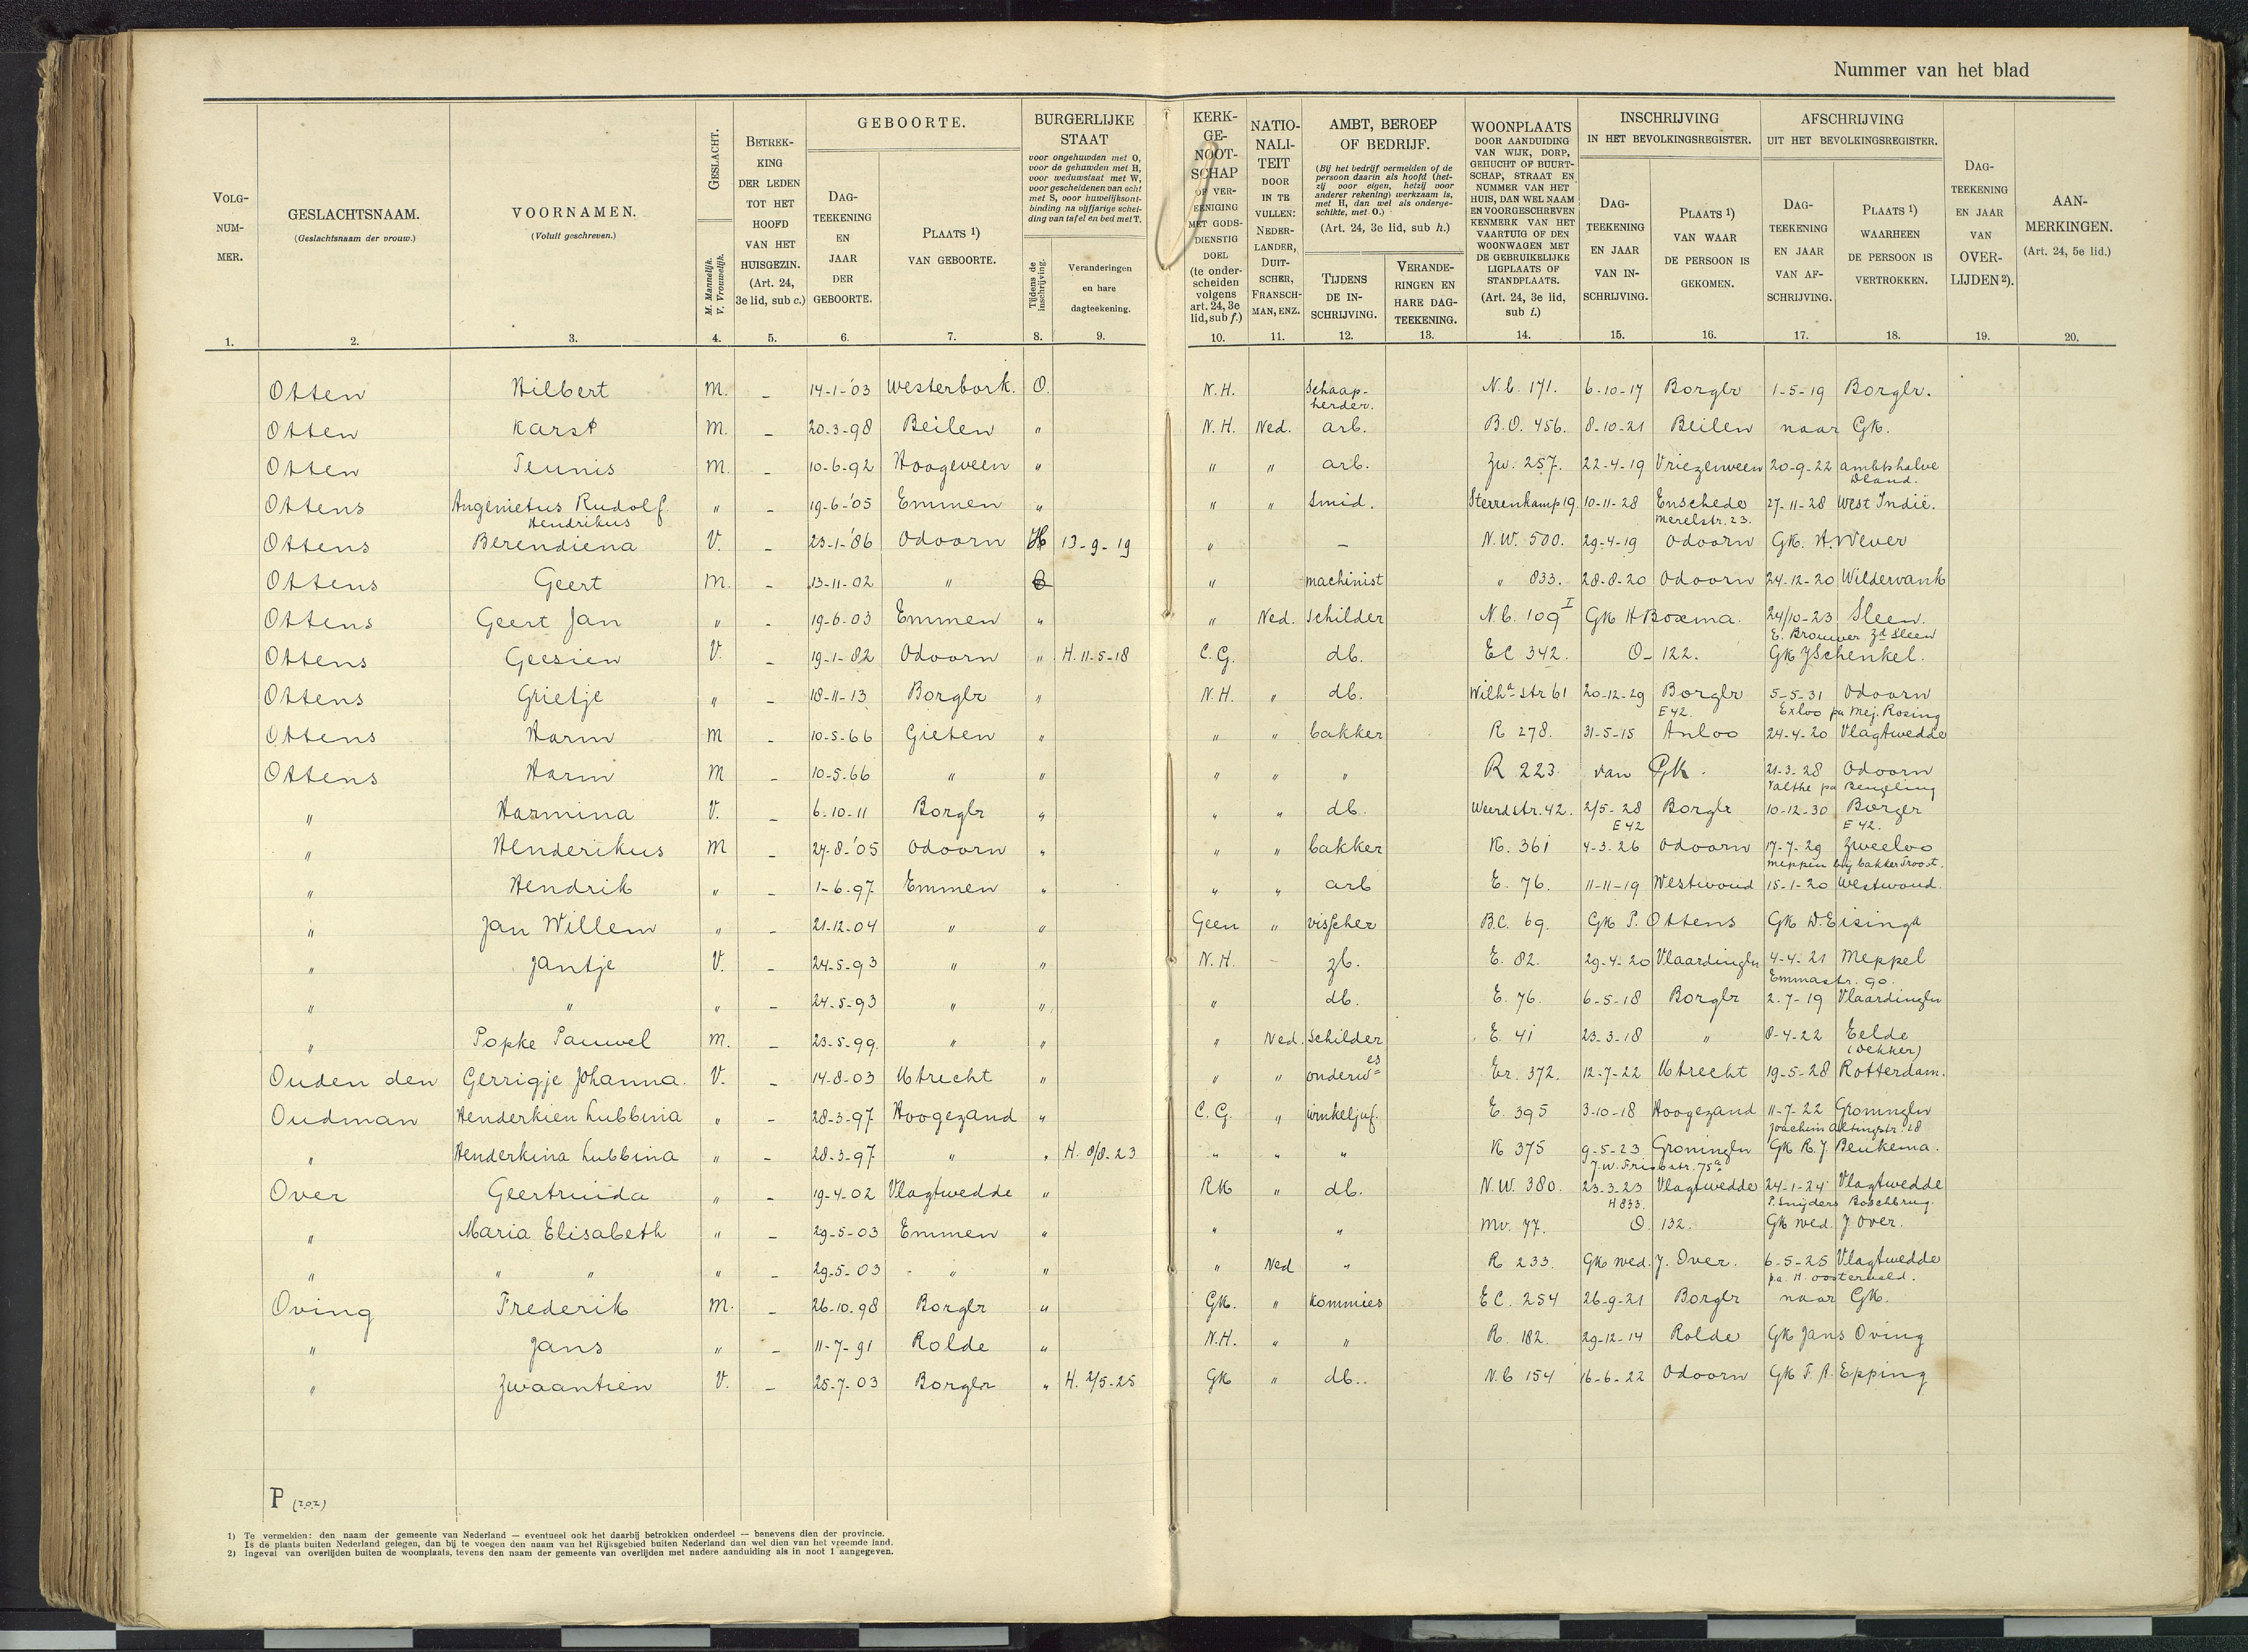 Nummer van het blad
VOLG-NUM-MER. GESLACHTSNAAM. (Geslachtsnaam der vrouw.) VOORNAMEN. (Voluit geschreven.) GESLACHT. M. Mannelijk. V. Vrouwelijk. BETREK-KING DER LEDEN TOT HET HOOFD VAN HET HUISGEZIN. (Art. 24, 3e lid, sub c.)
GEBOORTE. DAG-TEEKENING EN JAAR DER GEBOORTE. PLAATS 1) VAN GEBOORTE.
BURGERLIJKE STAAT voor ongehuwden met O, voor de gehuwden met H, voor weduwstaat met W, voor gescheidenen van echt met S, voor huwelijksont-binding na vijfjarige schei-ding van tafel en bed met T. Tijdens de inschrijving. Veranderingen en hare dagteekening.
KERK-GE-NOOT-SCHAP OF VER-EENIGING MET GODS-DIENSTIG DOEL (te onder-scheiden volgens art. 24, 3e lid, sub f.)
NATIO-NALI-TEIT DOOR IN TE VULLEN: NEDER-LANDER, DUIT-SCHER, FRANSCH-MAN, ENZ.
AMBT, BEROEP OF BEDRIJF. (Bij het bedrijf vermelden of de persoon daarin als hoofd (het-zij voor eigen, hetzij voor anderer rekening) werkzaam is, met H, dan wel als onderge-schikte, met O.) (Art. 24, 3e lid, sub h.) TIJDENS DE IN-SCHRIJVING. VERANDE-RINGEN EN HARE DAG-TEEKENING.
WOONPLAATS DOOR AANDUIDING VAN WIJK, DORP, GEHUCHT OF BUURT-SCHAP, STRAAT EN NUMMER VAN HET HUIS, DAN WEL NAAM EN VOORGESCHREVEN KENMERK VAN HET VAARTUIG OF DEN WOONWAGEN MET DE GEBRUIKELIJKE LIGPLAATS OF STANDPLAATS. (Art. 24, 3e lid, sub i.)
INSCHRIJVING IN HET BEVOLKINGSREGISTER. DAG-TEEKENING EN JAAR VAN IN-SCHRIJVING. PLAATS 1) VAN WAAR DE PERSOON IS GEKOMEN.
AFSCHRIJVING UIT HET BEVOLKINGSREGISTER. DAG-TEEKENING EN JAAR VAN AF-SCHRIJVING. PLAATS 1) WAARHEEN DE PERSOON IS VERTROKKEN.
DAG-TEEKENING EN JAAR VAN OVER-LIJDEN 2). AAN-MERKINGEN. (Art. 24, 5e lid.)
1. 2. 3. 4. 5. 6. 7. 8. 9. 10. 11. 12. 13. 14. 15. 16. 17. 18. 19. 20.
Otten Hilbert M. – 14-1-'03 Westerbork. O. N.H. Schaap-herder. N.b. 171. 6-10-17 Borger 1-5-19 Borger.
Otten Karst M. – 20-3-98 Beilen " N.H. Ned. arb. B.O. 456. 8-10-21 Beilen naar GK.
Otten Teunis M. – 10-6-92 Hoogeveen " " " arb. Zw. 257. 22-4-19 Vriezenveen 20-9-22 ambtshalve Dland.
Ottens Angenietus Rudolf Hendrikus " – 19-6-'05 Emmen " " " Smid. Sterrenkamp 19. 10-11-28 Enschede Merelstr. 23. 27-11-28 West Indië.
Ottens Berendiena V. – 23-1-'86 Odoorn H 13-9-19 " – N.W. 500. 29-4-19 Odoorn GK. H. Wever
Ottens Geert M. – 13-11-02 " O " machinist " 833. 28-8-20 Odoorn 24-12-20 Wildervank
Ottens Geert Jan " – 19-6-03 Emmen " " Ned. Schilder N.b. 109 I GK H Boxma. 24/10-23 Sleen. E. Brouwer Zd Sleen
Ottens Geesien V. – 19-1-82 Odoorn " H. 11-5-18 C.G. db. EC 342. O-122. GK J Schenkel.
Ottens Grietje " – 18-11-13 Borger " N.H. " db. Wilha str 61 20-12-29 Borger E 42. 5-5-31 Odoorn Exloo pa Mej. Rosing
Ottens Harm M – 10-5-66 Gieten " " " bakker R 278. 31-5-15 Anloo 24-4-20 Vlagtwedde
Ottens Harm M – 10-5-66 " " " " " R 223. van GK. 21-3-28 Odoorn Valthe pa Beugeling
" Harmina V. – 6-10-11 Borger " " " db. Weerdstr. 42. 2/5-28 E 42 Borger 10-12-30 Borger E 42.
" Henderikus M – 27-8-'05 Odoorn " " " bakker K. 361 4-3-26 Odoorn 17-7-29 Zweeloo Meppen bij bakker Troost.
" Hendrik " – 1-6-97 Emmen " " " arb E. 76. 11-11-19 Westwoud 15-1-20 Westwoud.
" Jan Willem " – 21-12-04 " " Geen " visscher B.C. 69. GK P. Ottens GK D. Eisinga
" Jantje V. – 24-5-93 " " N.H. – zb. E. 82. 29-4-20 Vlaardingen 4-4-21 Meppel Emmastr. 90.
" " " – 24-5-93 " " " db. E. 76. 6-5-18 Borger 2-7-19 Vlaardingen
" Popke Pauwel M. – 23-5-99. " " " Ned. Schilder E. 41 23-3-18 " 8-4-22 Eelde (Dekker)
Ouden den Gerrigje Johanna. V. – 14-8-03 Utrecht " " " onderw es Er. 372. 12-7-22 Utrecht 19-5-28 Rotterdam.
Oudman Henderkien Lubbina " – 28-3-97 Hoogezand " C.G. " winkeljuf. E. 395 3-10-18 Hoogezand 11-7-22 Groningen Joachim Altingstr. 18
" Henderkina Lubbina " – 28-3-97 " " H. 8/8-23 " " " K 375 9-5-23 Groningen J.W. Frisostr. 75a. GK R.J. Beukema.
Over Geertruida " – 19-4-02 Vlagtwedde " RK " db. N.W. 380. 23-3-23 H 833. Vlagtwedde 24-1-24 Vlagtwedde P. Snijders Boschbrug.
" Maria Elisabeth " – 29-5-03 Emmen " " " Mv. 77. O. 132. GK wed. J Over.
" " " " – 29-5-03 " " " Ned " R 233. GK wed. J. Over. 6-5-25 Vlagtwedde pa. H. Oosterveld.
Oving Frederik M. – 26-10-98 Borger " GK. " Kommies EC. 254 26-9-21 Borger naar GK.
" Jans " – 11-7-91 Rolde " N.H. " " R. 182. 29-12-14 Rolde GK Jans Oving
" Zwaantien V. – 25-7-03 Borger " H. 2/5-25 GK " db.. N.b 154 16-6-22 Odoorn GK F.A. Epping
P (202)
1) Te vermelden: den naam der gemeente van Nederland — eventueel ook het daarbij betrokken onderdeel — benevens dien der provincie.
Is de plaats buiten Nederland gelegen, dan bij te voegen den naam van het Rijksgebied buiten Nederland dan wel dien van het vreemde land.
2) Ingeval van overlijden buiten de woonplaats, tevens den naam der gemeente van overlijden met nadere aanduiding als in noot 1 aangegeven.